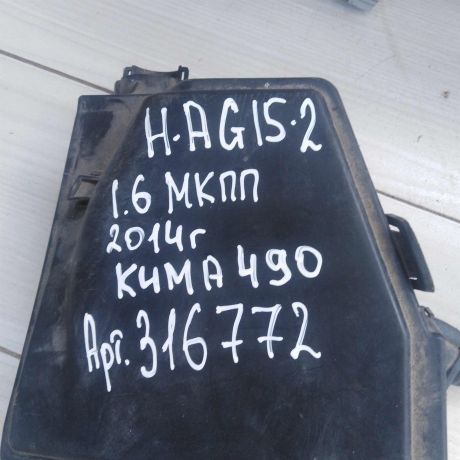 H-AG15-2
1.6 МКПП
2014г
K4MA490
Арт. 316772